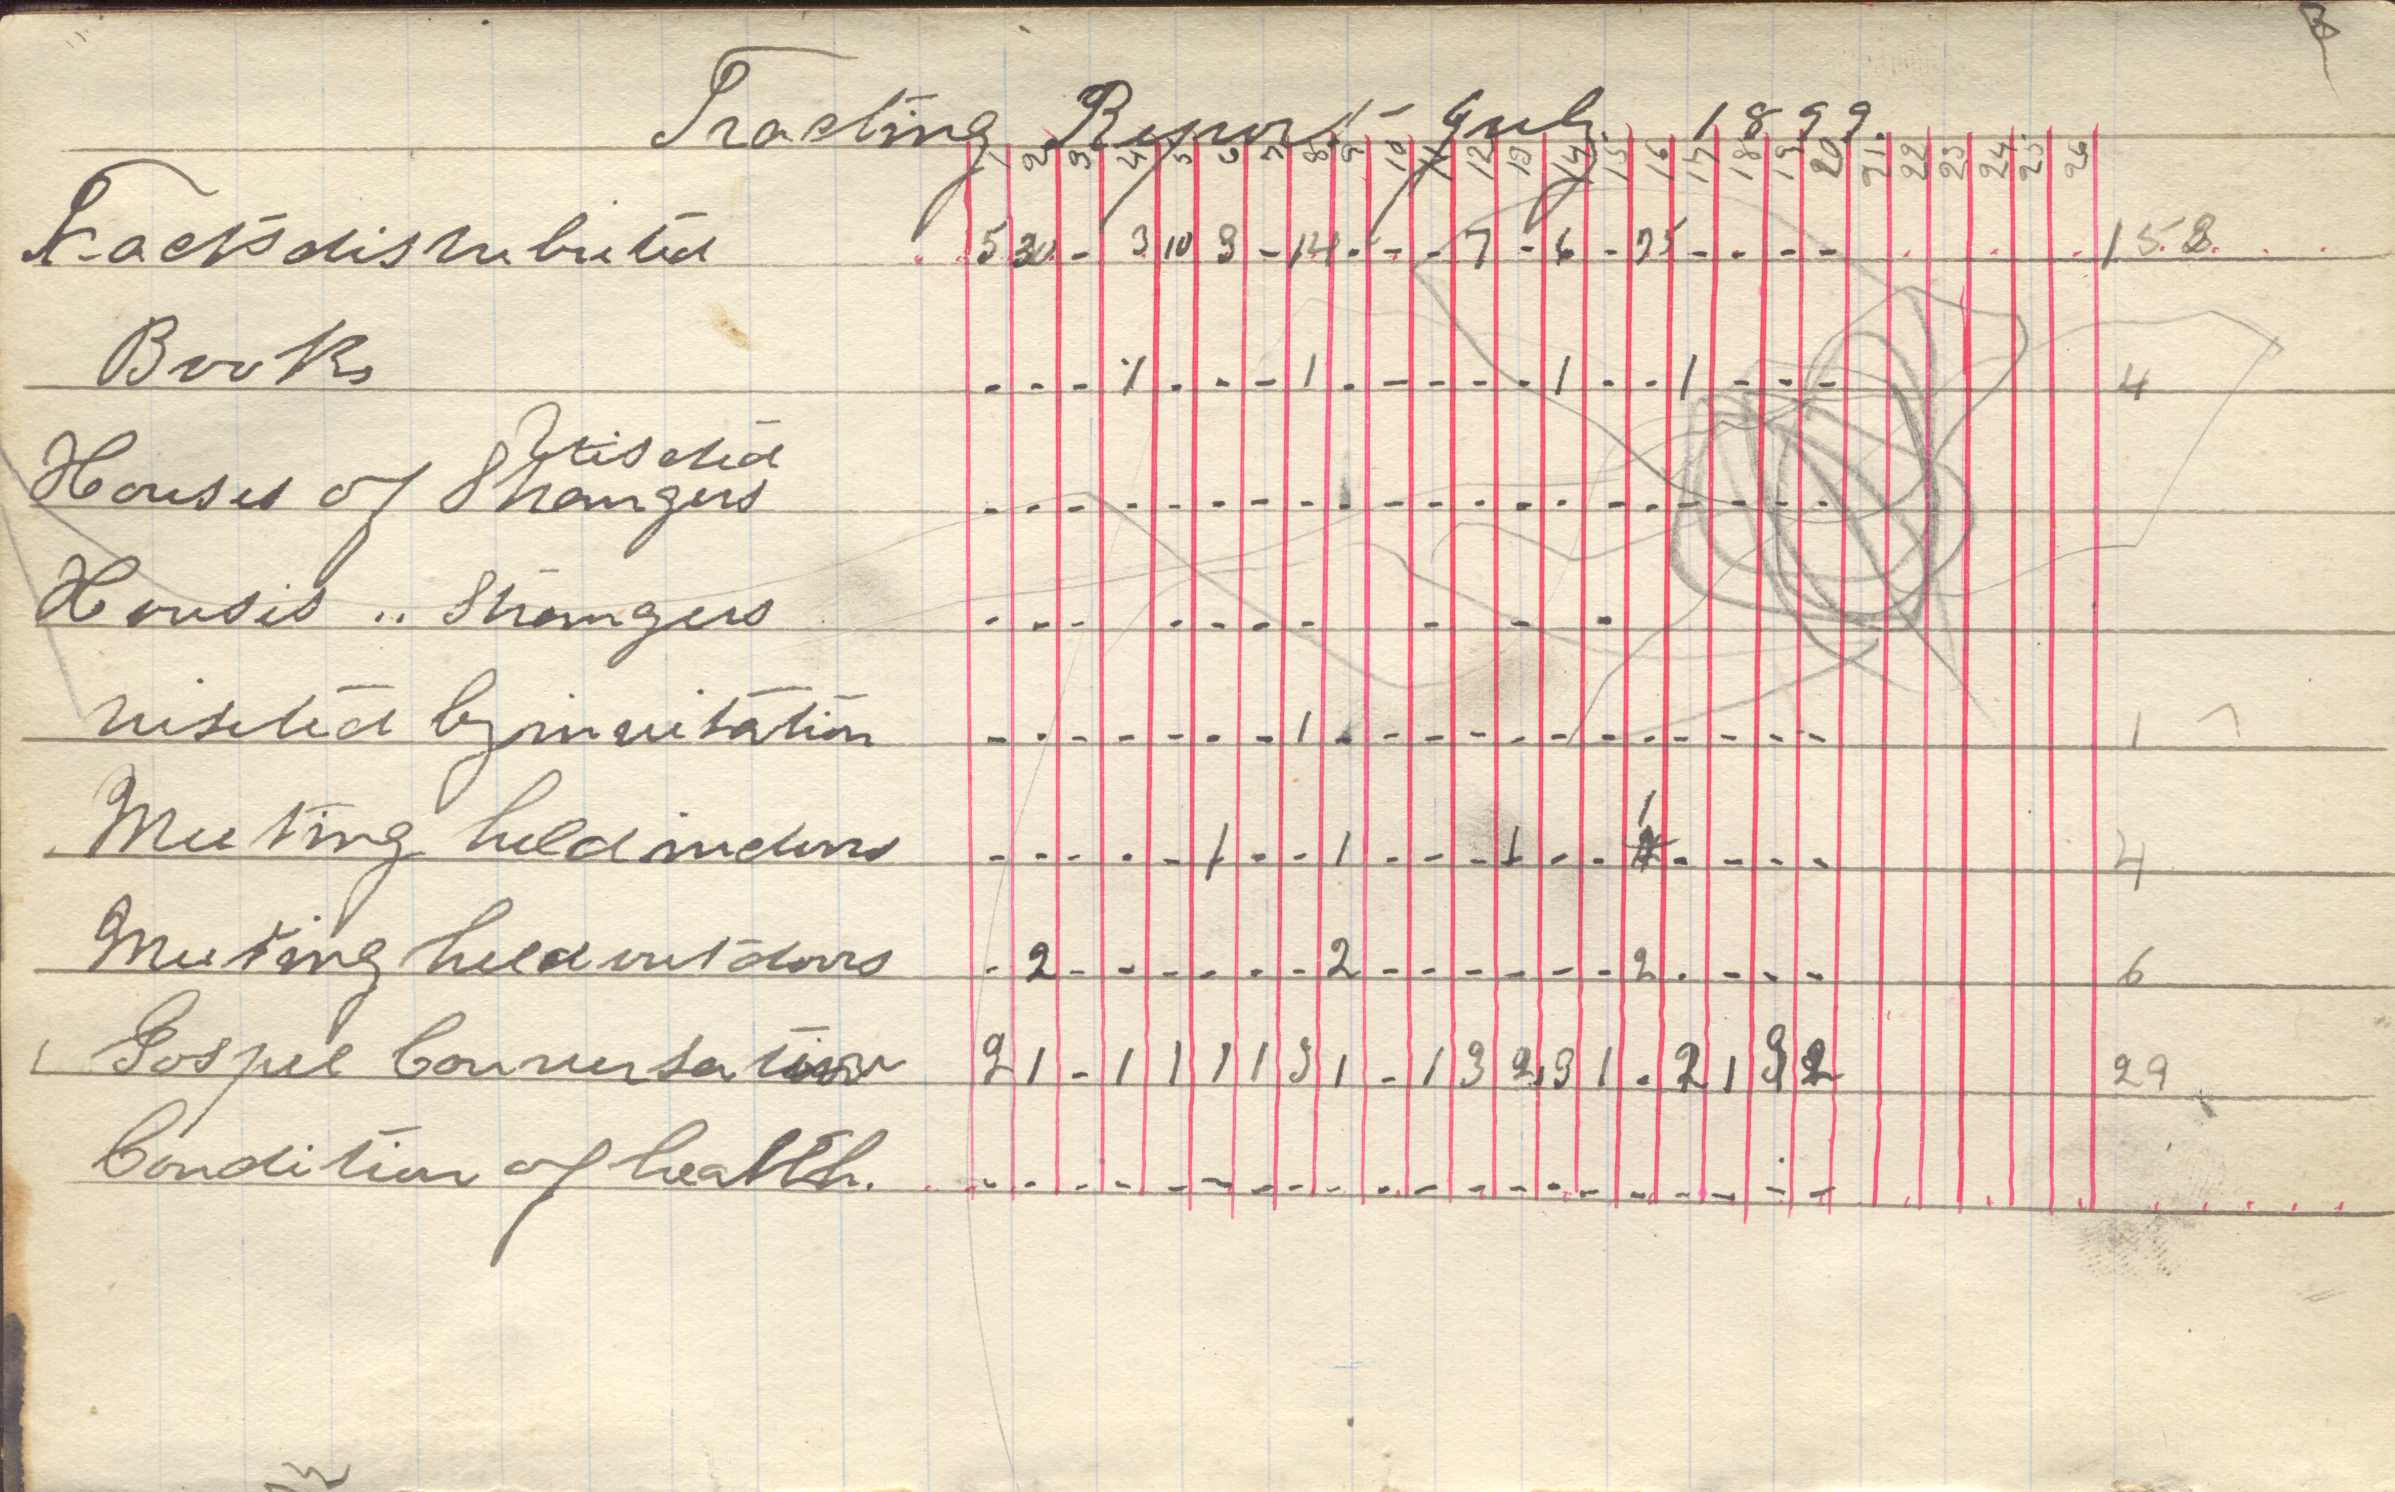 Tracting Report July. 1899.
1 2 3 4 5 6 7 8 9 10 11 12 13 14 15 16 17 18 19 20 21. 22 23 24 25 26
Tracts distributed 5 30 - 3 10 9 - 14 - - - 7 - 6 - 75 - - - - 158
Books - - - 1 - - - 1 - - - - - 1 - - 1 - - - 4
Visited
Houses of Strangers - - - - - - - - - - - - - - - - - - - -
Houses " Strangers - - - - - - - - - -
visited by invitation - - - - - - - 1 - - - - - - - - - - - - 1
Meeting held indoors - - - - - 1 - - 1 - - - 1 - - 1 - - - - 4
Meeting held outdoors - 2 - - - - - - 2 - - - - - - 2 - - - - 6
Gospel Conversation 2 1 - 1 1 1 1 3 1 - 1 3 2 3 1 - 2 1 3 2 29
Condition of health. - - - - - - - - - - - - - - - - - - - -